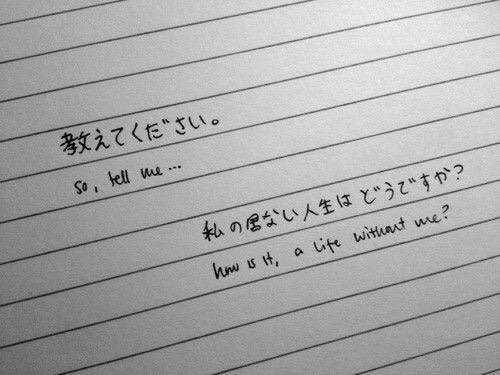 教えてください。
so, tell me...
私の居ない人生はどうですか?
how is it, a life without me?